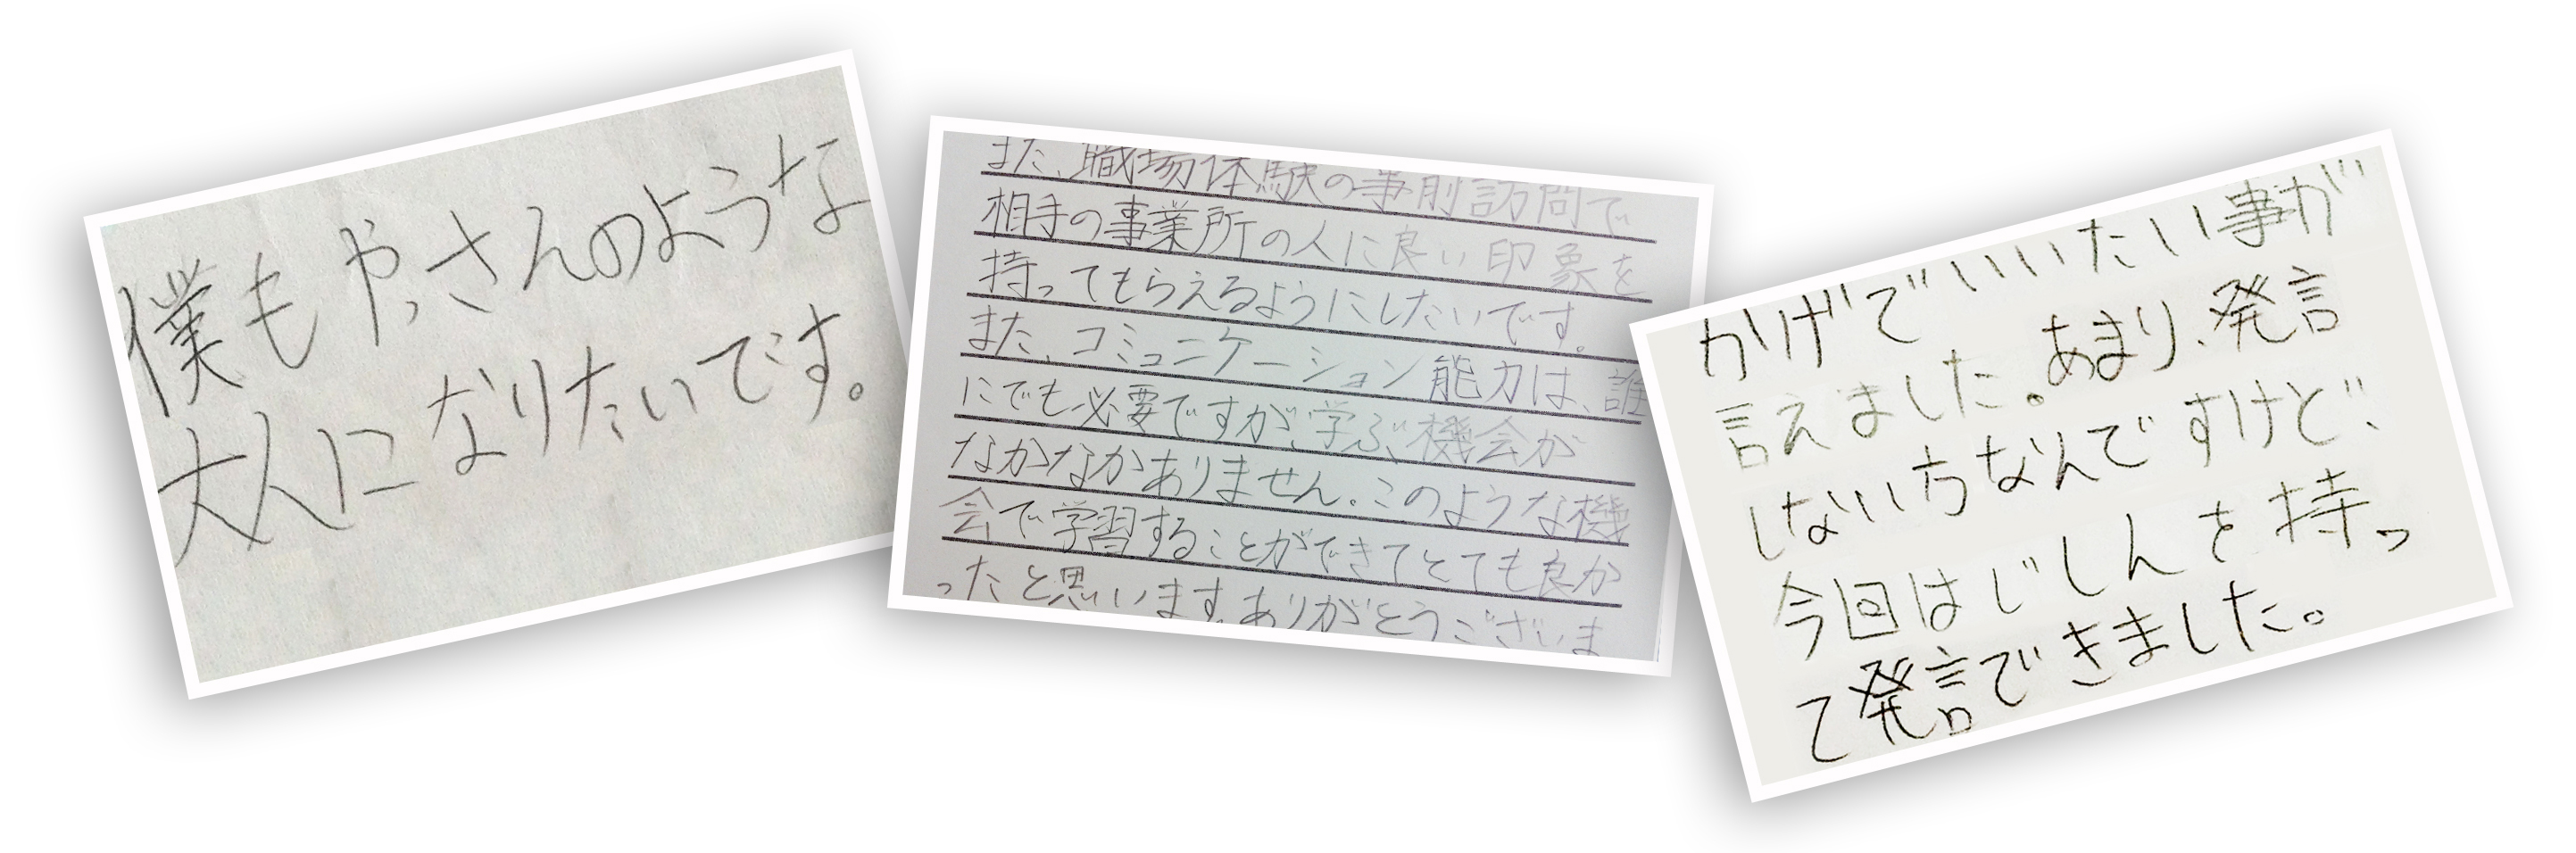 僕もやっさんのような
大人になりたいです。
また、職場体験の事前訪問で
相手の事業所の人に良い印象を
持ってもらえるようにしたいです。
また、コミュニケーション能力は、誰
にでも必要ですが、学ぶ機会が
なかなかありません。このような機
会で学習することができてとても良か
ったと思います。ありがとうございま
かげでいいたい事が
言えました。あまり、発言
しない方なんですけど、
今回はじしんを持っ
て発言できました。